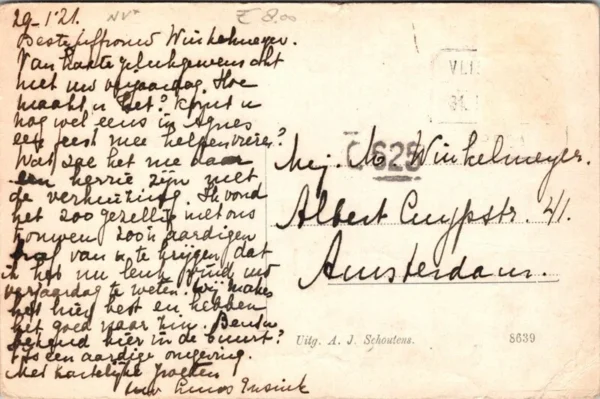 29-1'21.
NV*
£ 8.00
Beste Juffrouw Winkelmeyer.
Van harte gelukgewenscht
met uw verjaardag. Hoe
maakt u het? Komt u
nog wel eens in Agnes
een feest mee helpen vieren?
Wat zae het nu daar
een herrie zijn met
de verhuizing. Ik vond
het zoo gezellig met ons
trouwen zoo'n aardigen
van u te krijgen, dat
ik het nu leuk vind uw
verjaardag te weten. Wij maken
het hier best en hebben
het goed naar zin. Bent u
bekend hier in de buurt?
't Is een aardige omgeving.
Met hartelijke groeten
uw
VLI
31.
C 628
Mej. M. Winkelmeyer.
Albert Cuypstr. 41.
Amsterdam.
Uitg. A. J. Schoutens.
8639